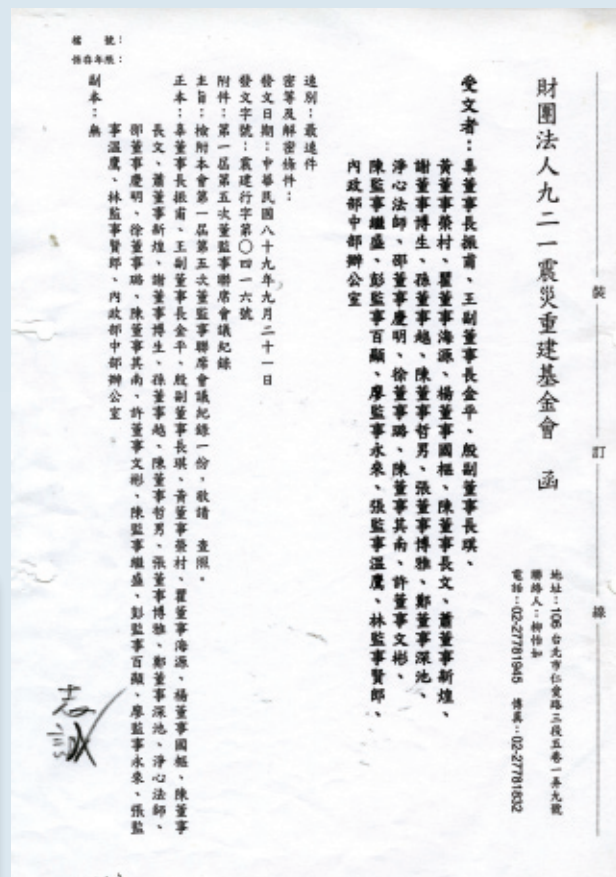 檔　號：
保存年限：
裝
訂
線
財團法人九二一震災重建基金會　函
地址：106 台北市仁愛路三段五巷一弄九號
聯絡人：柳怡如
電話：02-27781945　傳真：02-27781832
受文者：辜董事長振甫、王副董事長金平、殷副董事長琪、
黃董事榮村、瞿董事海源、楊董事國樞、陳董事長文、蕭董事新煌、
謝董事博生、孫董事越、陳董事哲男、張董事博雅、鄭董事深池、
淨心法師、邵董事慶明、徐董事璐、陳董事其南、許董事文彬、
陳監事繼盛、彭監事百顯、廖監事永來、張監事溫鷹、林監事賢郎、
內政部中部辦公室
速別：最速件
密等及解密條件：
發文日期：中華民國八十九年九月二十一日
發文字號：震建行字第〇四一六號
附件：第一屆第五次董監事聯席會議紀錄
主旨：檢附本會第一屆第五次董監事聯席會議紀錄一份，敬請　查照。
正本：辜董事長振甫、王副董事長金平、殷副董事長琪、黃董事榮村、瞿董事海源、楊董事國樞、陳董事
長文、蕭董事新煌、謝董事博生、孫董事越、陳董事哲男、張董事博雅、鄭董事深池、淨心法師、
邵董事慶明、徐董事璐、陳董事其南、許董事文彬、陳監事繼盛、彭監事百顯、廖監事永來、張監
事溫鷹、林監事賢郎、內政部中部辦公室
副本：無